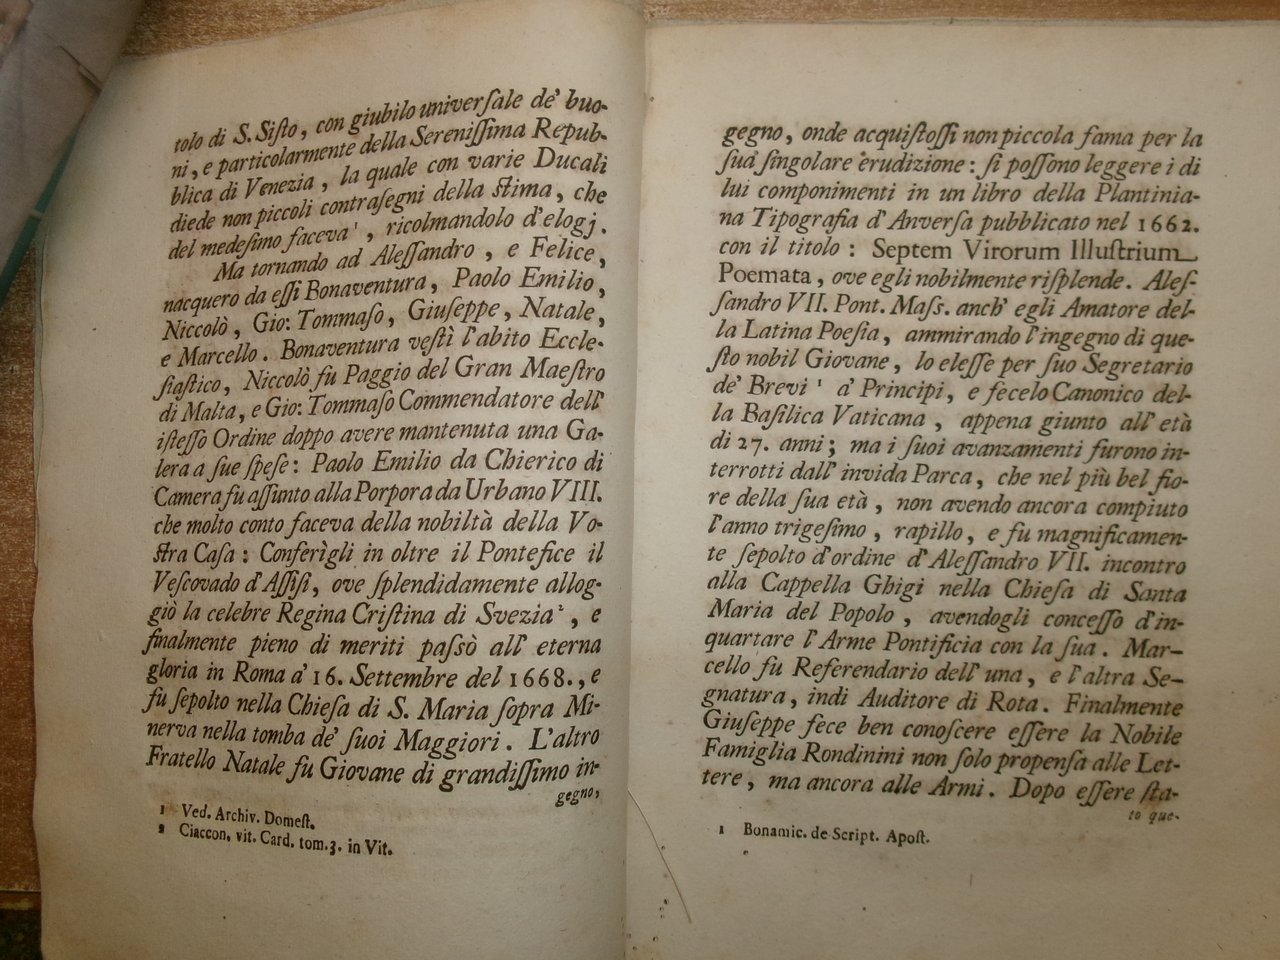 tolo di S. Siſto, con giubilo univerſale de' buo-
ni, e particolarmente della Sereniſſima Repub-
blica di Venezia, la quale con varie Ducali
diede non piccoli contraſegni della ſtima, che
del medeſimo faceva ¹, ricolmandolo d'elogj.
Ma tornando ad Aleſſandro, e Felice,
nacquero da eſſi Bonaventura, Paolo Emilio,
Niccolò, Gio: Tommaſo, Giuſeppe, Natale,
e Marcello. Bonaventura veſtì l'abito Eccle-
ſiaſtico, Niccolò fu Paggio del Gran Maeſtro
di Malta, e Gio: Tommaſo Commendatore dell'
iſteſſo Ordine doppo avere mantenuta una Ga-
lera a ſue ſpeſe: Paolo Emilio da Chierico di
Camera fu aſſunto alla Porpora da Urbano VIII.
che molto conto faceva della nobiltà della Vo-
ſtra Caſa: Conferìgli in oltre il Pontefice il
Veſcovado d'Aſſiſi, ove ſplendidamente allog-
giò la celebre Regina Criſtina di Svezia ², e
finalmente pieno di meriti paſsò all' eterna
gloria in Roma a' 16. Settembre del 1668., e
fu ſepolto nella Chieſa di S. Maria ſopra Mi-
nerva nella tomba de' ſuoi Maggiori. L'altro
Fratello Natale fu Giovane di grandiſſimo in-
gegno,
1 Ved. Archiv. Domeſt.
2 Ciaccon. vit. Card. tom. 3. in Vit.
gegno, onde acquiſtoſſi non piccola fama per la
ſua ſingolare erudizione: ſi poſſono leggere i di
lui componimenti in un libro della Plantinia-
na Tipografia d'Anverſa pubblicato nel 1662.
con il titolo: Septem Virorum Illuſtrium
Poemata, ove egli nobilmente riſplende. Aleſ-
ſandro VII. Pont. Maſs. anch' egli Amatore del-
la Latina Poeſia, ammirando l'ingegno di que-
ſto nobil Giovane, lo eleſſe per ſuo Segretario
de' Brevi ¹ a' Principi, e fecelo Canonico del-
la Baſilica Vaticana, appena giunto all' età
di 27. anni; ma i ſuoi avanzamenti furono in-
terrotti dall' invida Parca, che nel più bel fio-
re della ſua età, non avendo ancora compiuto
l'anno trigeſimo, rapillo, e fu magnificamen-
te ſepolto d'ordine d'Aleſſandro VII. incontro
alla Cappella Ghigi nella Chieſa di Santa
Maria del Popolo, avendogli conceſſo d'in-
quartare l'Arme Pontificia con la ſua. Mar-
cello fu Referendario dell' una, e l'altra Se-
gnatura, indi Auditore di Rota. Finalmente
Giuſeppe fece ben conoſcere eſſere la Nobile
Famiglia Rondinini non ſolo propenſa alle Let-
tere, ma ancora alle Armi. Dopo eſſere ſta-
to que-
1 Bonamic. de Script. Apoſt.